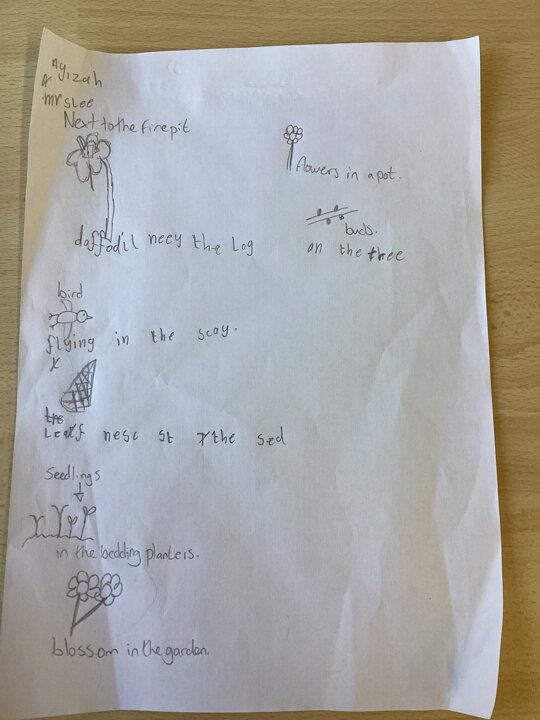 Ayizah
mrs Lee
Next to the fire pit
flowers in a pot.
daffodil necy the Log
buds.
on the tree
bird
flying in the scay.
Leaf nesc st the sed
seedlings
in the bedding planters.
blossom in the garden.